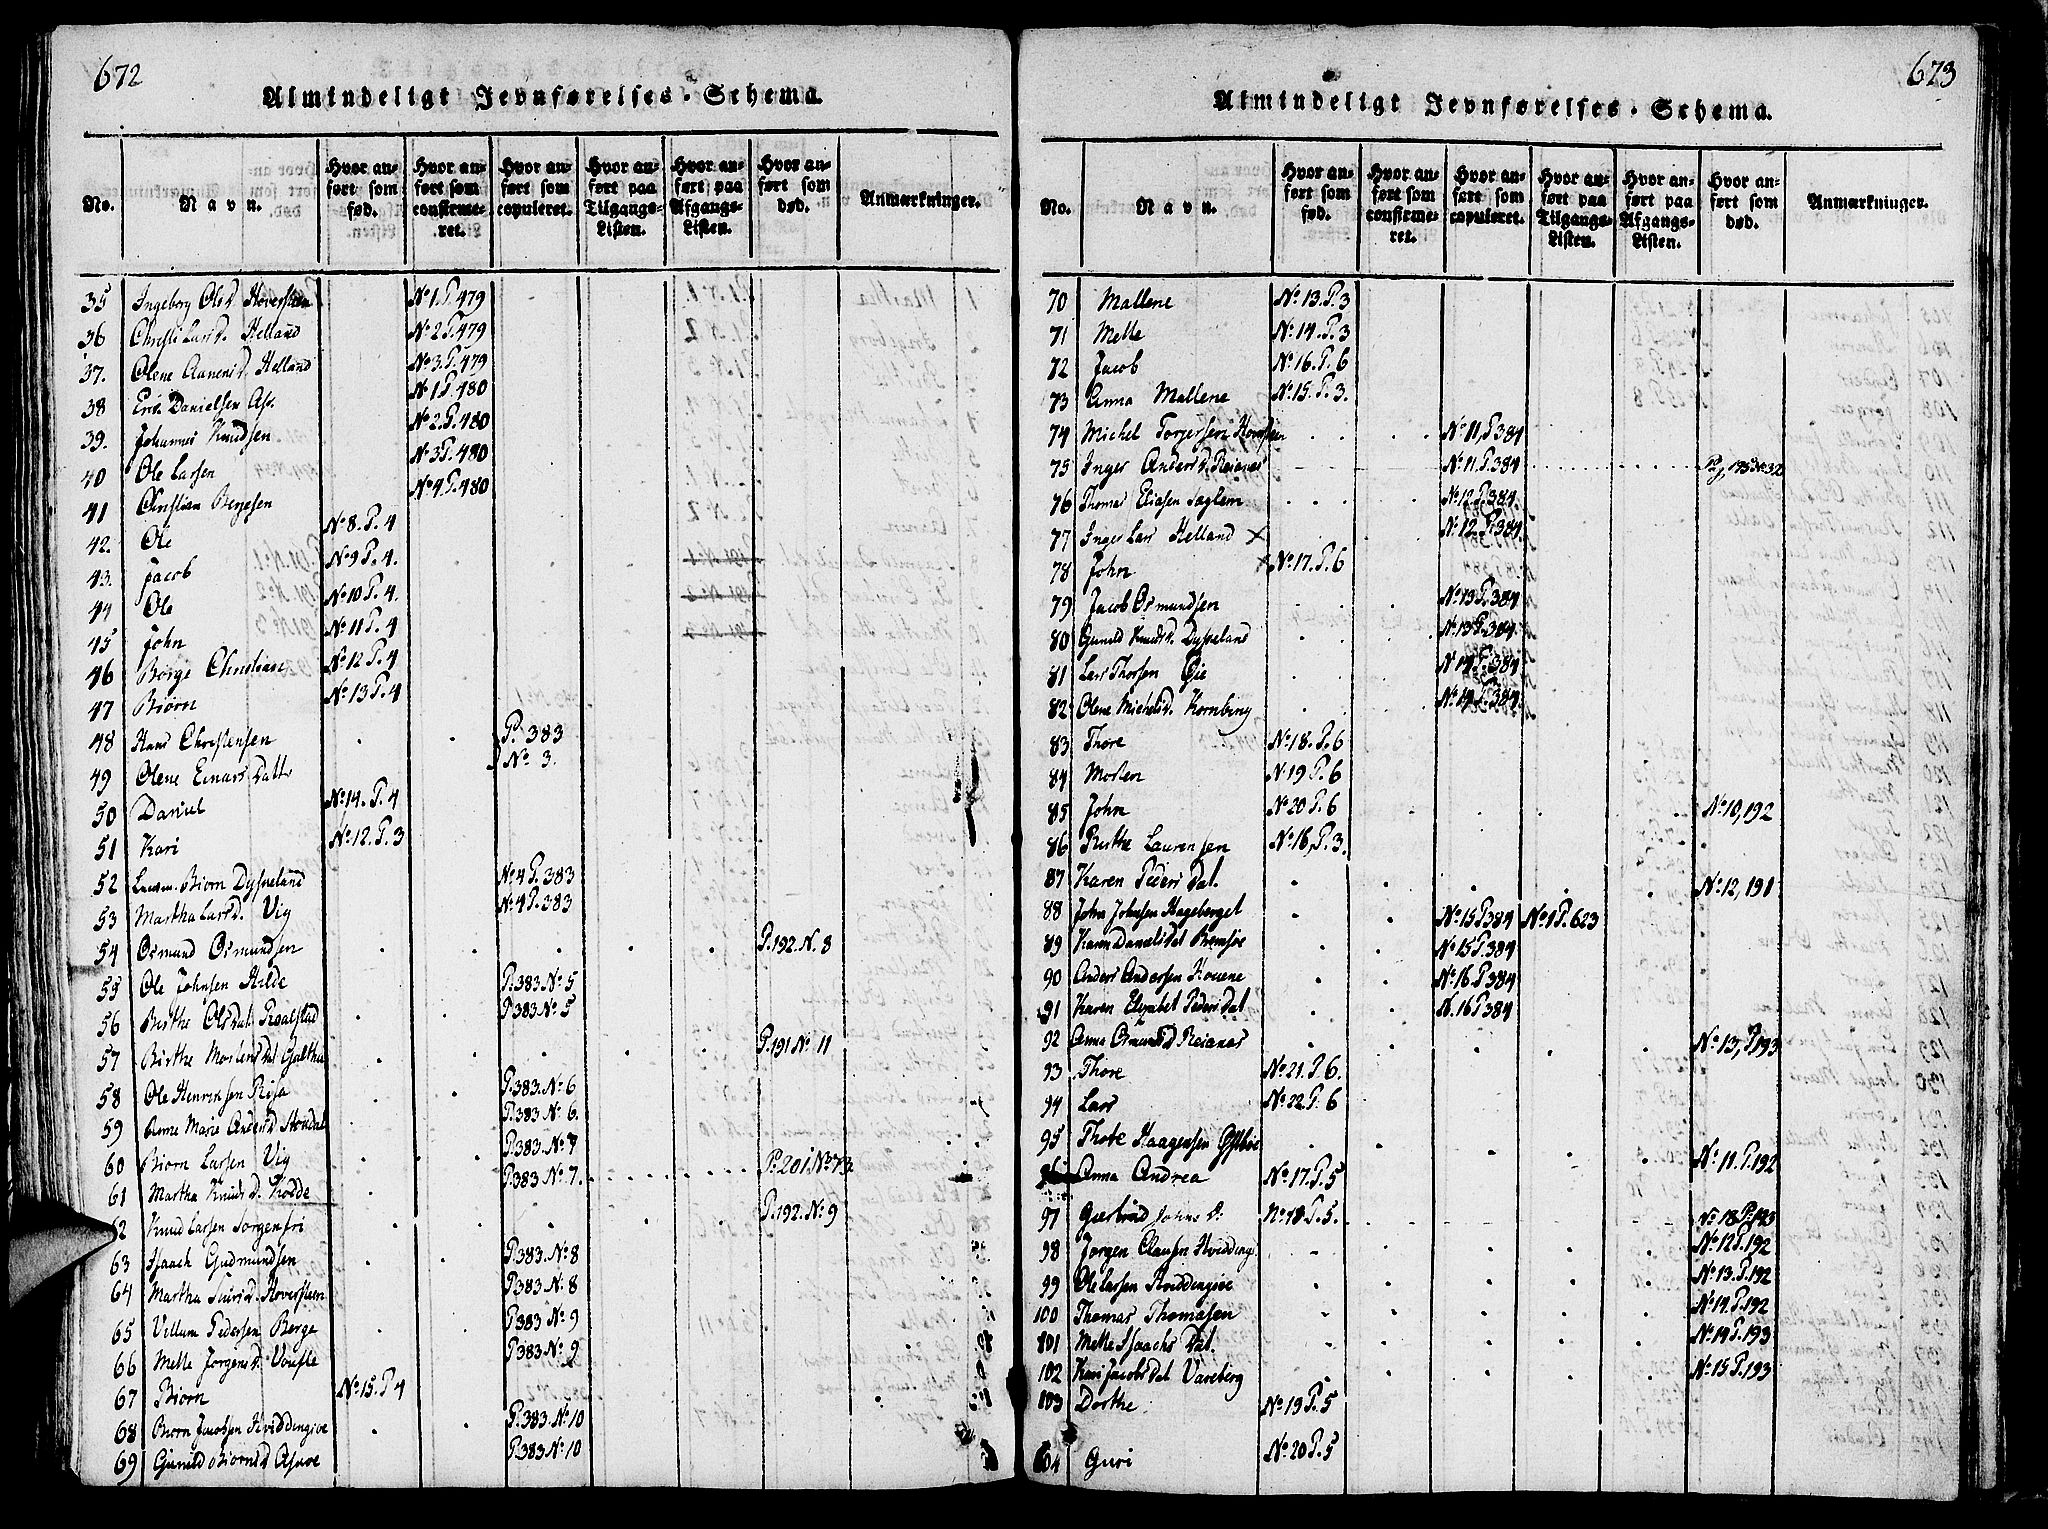 672
Almindeligt Jevnførelses-Schema.
No. Navn. Hvor anført som fød. Hvor anført som confirmeret. Hvor anført som copuleret. Hvor anført paa Tilgangs-Listen. Hvor anført paa Afgangs-Listen. Hvor anført som død. Anmærkninger.
35 Ingeborg Olsd. Høversteen No 1. P. 479
36 Christi Larsd. Helland No 2. P. 479
37. Olene Aanensd. Helland No 3. P. 479
38 Eric Danielsen As. No 1 P. 480
39. Johannes Knudsen No 2. P. 480
40 Ole Larsen No 3 P. 480
41 Christian Bergesen No 4 P. 480
42. Ole No 8. P. 4
43. Jacob No 9 P. 4.
44 Ole No 10 P. 4.
45 John No 11 P. 4
46 Børge Christian No 12 P. 4
47 Biørn No 13 P. 4
48 Hans Christensen P. 383
49 Olene Einars Datt No 3.
50 Daniel No 14. P. 4
51 Kari No 12. P. 3
52 Biørn Dysseland No 4 P. 383
53 Martha Larsd. Vig No 4 P. 383
54 Osmund Osmundsen P. 192 N. 8
55 Ole Johnsen Hilde P. 383 No 5
56 Birthe Olsdat P. 383 No 5
57 Birthe Mortensdat P. 191 No 11
58 Ole Henricsen Risa P. 383. No 6
59 Anne Marie Andersd P. 383 No 6.
60 Biørn Larsen Vig P. 383. No 7
61 Martha Knudsd. Kodde P. 383 No 7. P. 201. No 73
62 Knud Larsen Sorgenfri P. 192. No 9
63 Isaach Gudmundsen P. 383. No 8
64 Martha Høversteen P. 383 No 8
65 Villum Pedersen Berge P. 383 No 9
66 Mette Jørgensd. P. 383 No 9
67 Biørn No 15. P 4
68 Biørn Jacobsen Hviddingsøe P. 383. No 10
69 Gunild Biørnsd P. 383 No 10
673
Almindeligt Jevnførelses-Schema.
No. Navn. Hvor anført som fød. Hvor anført som confirmeret. Hvor anført som copuleret. Hvor anført paa Tilgangs-Listen. Hvor anført paa Afgangs-Listen. Hvor anført som død. Anmærkninger.
70 Mallene No 13. P. 3
71 Mette No 14. P. 3
72 Jacob No 16. P. 6
73 Anna Mallene No 15. P. 3.
74 Michel Torgersen No 11, P 384
75 Inger Andersd. Reianes No 11. P. 384
76 Thomas Eliasen No 12. P. 384.
77 Inger Lars Helland × No 12. P. 384.
78 John × No 17. P. 6
79 Jacob Osmundsen No 13 P. 384
80 Gunild Knudsd. Dysseland No 13 P. 384
81 Lars Thorsen Øie No 14 P. 384
82 Olene Michelsd. Kornberg No 14 P. 384.
83 Thore No 18. P. 6
84 Morten No 19 P. 6
85 John No 20 P. 6 No 10, 192
86 Birthe Laurensen No 16, P. 3.
87 Karen Peders Dat. No 12, 191
88 John Johnsen Hageberget No 15 P 384 No 1 P. 623
89 Karen Danielsdat No 15 P. 384
90 Anders Andersen No 16 P 384
91 Karen Elisabet Peders Dat N. 16 P 384
92 Anna Osmunsd Reianes No 13, P 193
93 Thore No 21. P. 6.
94 Lars No 22 P. 6
95 Thore Haagensen No 11. P. 192
Anna Andrea No 17. P. 5
97 Johns D: No 18. P. 5.
98 Jørgen Clausen Hvidding No 12 P. 192
99 Ole Larsen Hviddingsøe No 13. P. 192
100 Thomas Thomasen No 14. P. 192
101 Mette Isaachs Dat. No 14 P. 193
102 Kari Jacobsdat Vareberg No 15 P. 193
103 Dorthe No 19 P. 5
104 Guri No 20 P. 5